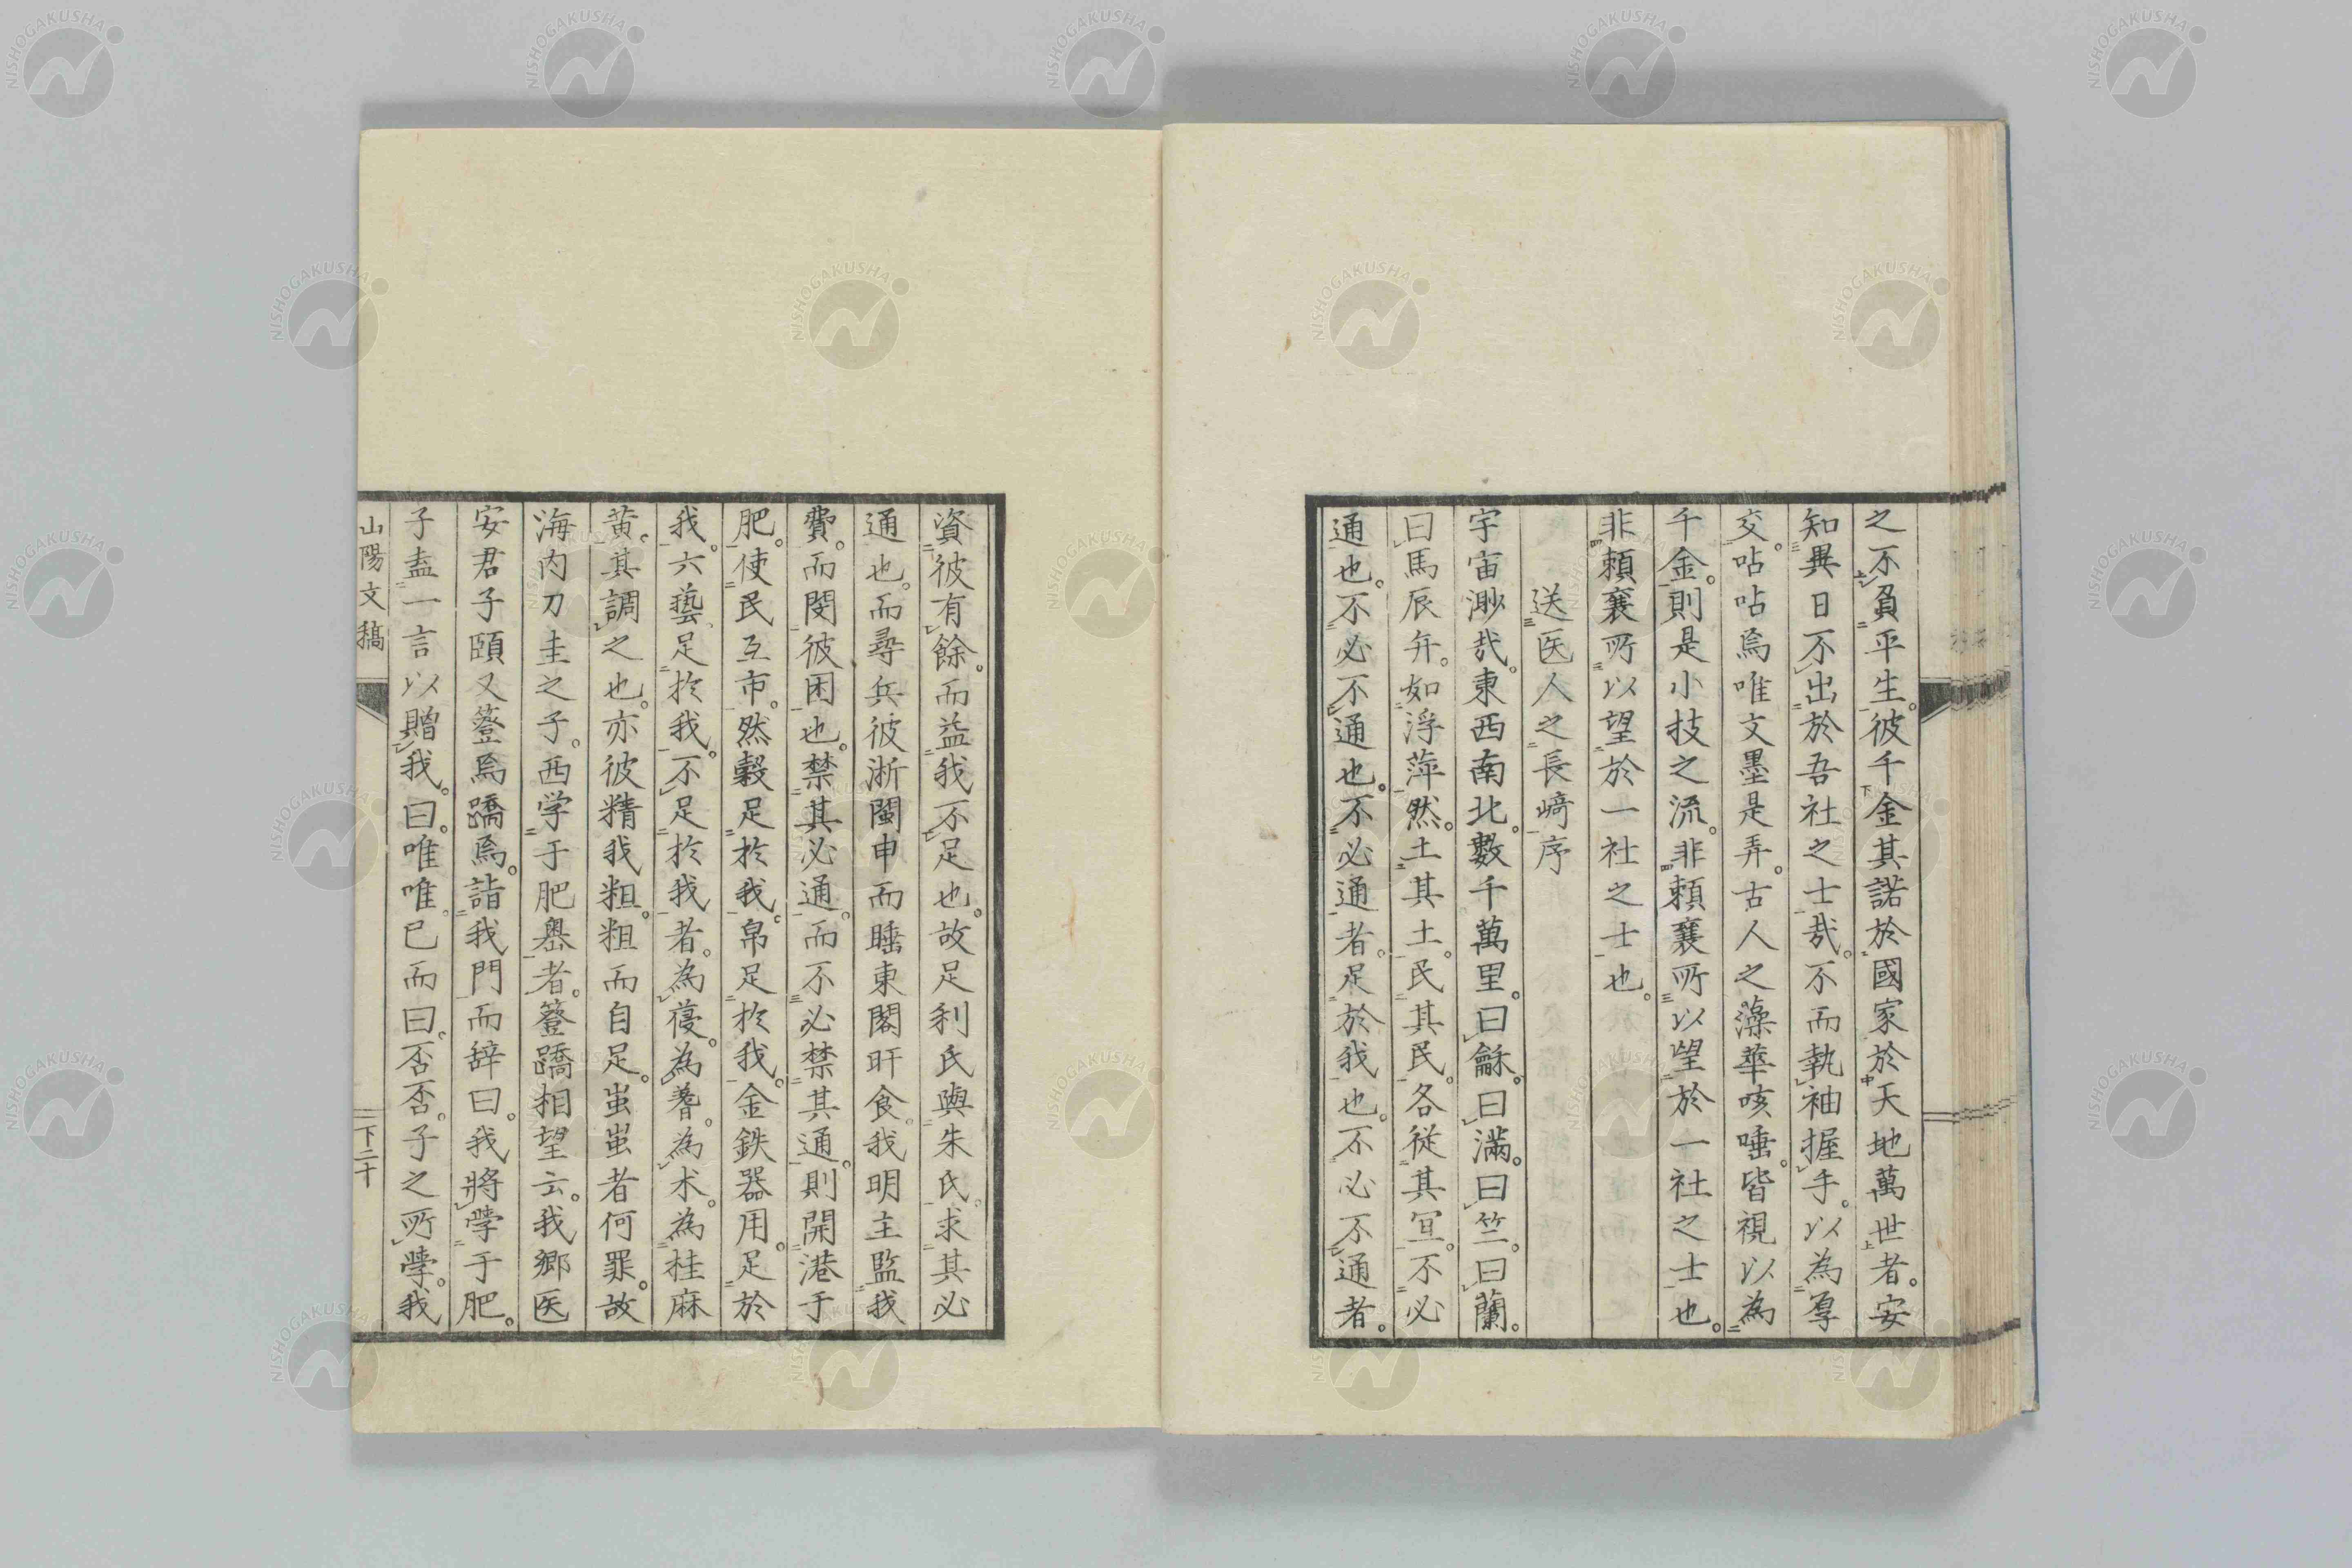 之不負平生。彼千金其諾於國家於天地萬世者。安
知異日不出於吾社之士哉。不而執袖握手。以為厚
交。呫呫焉唯文墨是弄。古人之藻華咳唾。皆視以為
千金。則是小技之流。非頼襄所以望於一社之士也。
非頼襄所以望於一社之士也。
送医人之長﨑序
宇宙渺哉。東西南北。數千萬里。曰龢。曰滿。曰竺。曰蘭。
曰馬辰弁。如浮萍然。土其土。民其民。各從其冝。不必
通也。不必不通也。不必通者。足於我也。不必不通者。
資彼有餘。而益我不足也。故足利氏與朱氏。求其必
通也。而尋兵彼浙閩申而睡東閣旰食。我明主監我
費。而閔彼困也。禁其必通。而不必禁其通。則開港于
肥。使民互市。然穀足於我。帛足於我。金鉄器用。足於
我。六藝足於我。不足於我者。為葠。為蓍。為朮。為桂麻
黄。其調之也。亦彼精我粗。粗而自足。蚩蚩者何罪。故
海内刀圭之子。西学于肥嶴者。簦蹻相望云。我郷医
安君子頤又簦焉蹻焉。詣我門而辞曰。我將学于肥。
子盍一言以贈我。曰。唯唯已而曰。否否。子之所学。我
山陽文稿
下二十
NISHOGAKUSHA